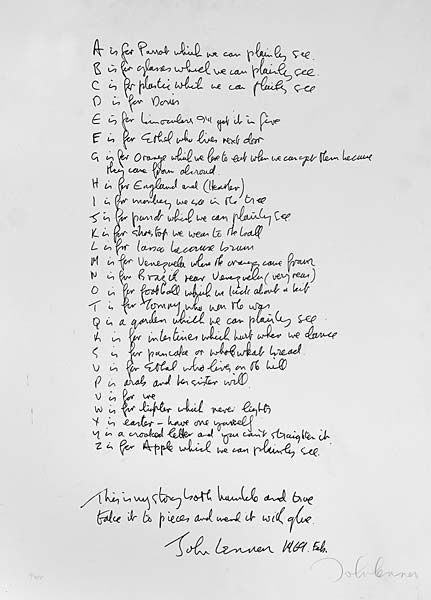 A is for Parrot which we can plainly see.
B is for glasses which we can plainly see.
C is for plastic which we can plainly see
D is for Doris
E is for binoculars I'll get it in five
F is for Ethel who lives next door
G is for Orange which we love to eat when we can get them because
they come from abroad
H is for England and (Heather)
I is for monkey we see in the tree
J is for parrot which we can plainly see
K is for shoetop we wear to the ball
L is for lasso because brown
M is for Venezuela where the oranges come from
N is for Brazil near Venezuela (very near)
O is for football which we kick about a bit
T is for Tommy who won the war
Q is a garden which we can plainly see
R is for intestines which hurt when we dance
S is for pancake or whole wheat bread
U is for Ethel who lives on the hill
P is arab and her sister will
V is for me
W is for lighter which never lights
X is easter - have one yourself
Y is a crooked letter and you can't straighten it
Z is for Apple which we can plainly see.
This is my story both humble and true
take it to pieces and mend it with glue.
John Lennon 1969. Feb.
John Lennon